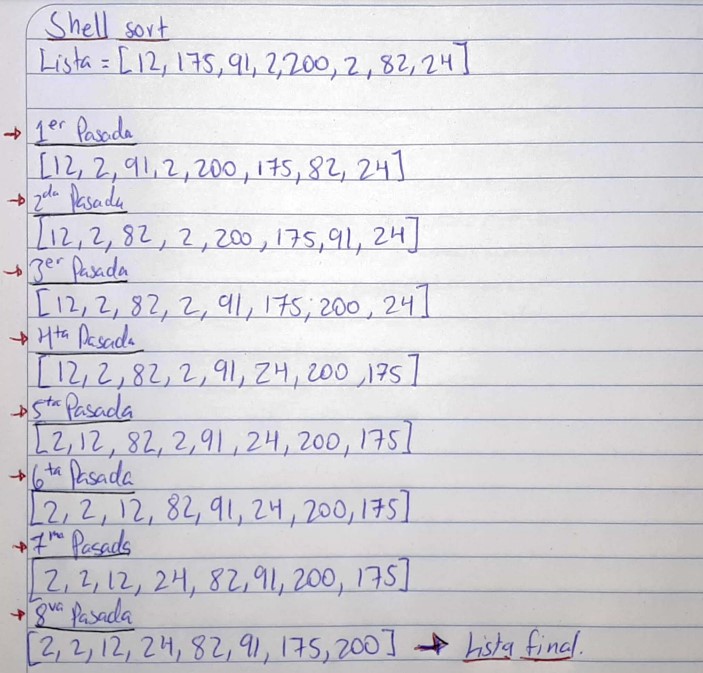 Shell sort
Lista = [12, 175, 91, 2, 200, 2, 82, 24]
→ 1er Pasada
[12, 2, 91, 2, 200, 175, 82, 24]
→ 2da Pasada
[12, 2, 82, 2, 200, 175, 91, 24]
→ 3er Pasada
[12, 2, 82, 2, 91, 175, 200, 24]
→ 4ta Pasada
[12, 2, 82, 2, 91, 24, 200, 175]
→ 5ta Pasada
[2, 12, 82, 2, 91, 24, 200, 175]
→ 6ta Pasada
[2, 2, 12, 82, 91, 24, 200, 175]
→ 7ma Pasada
[2, 2, 12, 24, 82, 91, 200, 175]
→ 8va Pasada
[2, 2, 12, 24, 82, 91, 175, 200] → Lista final.